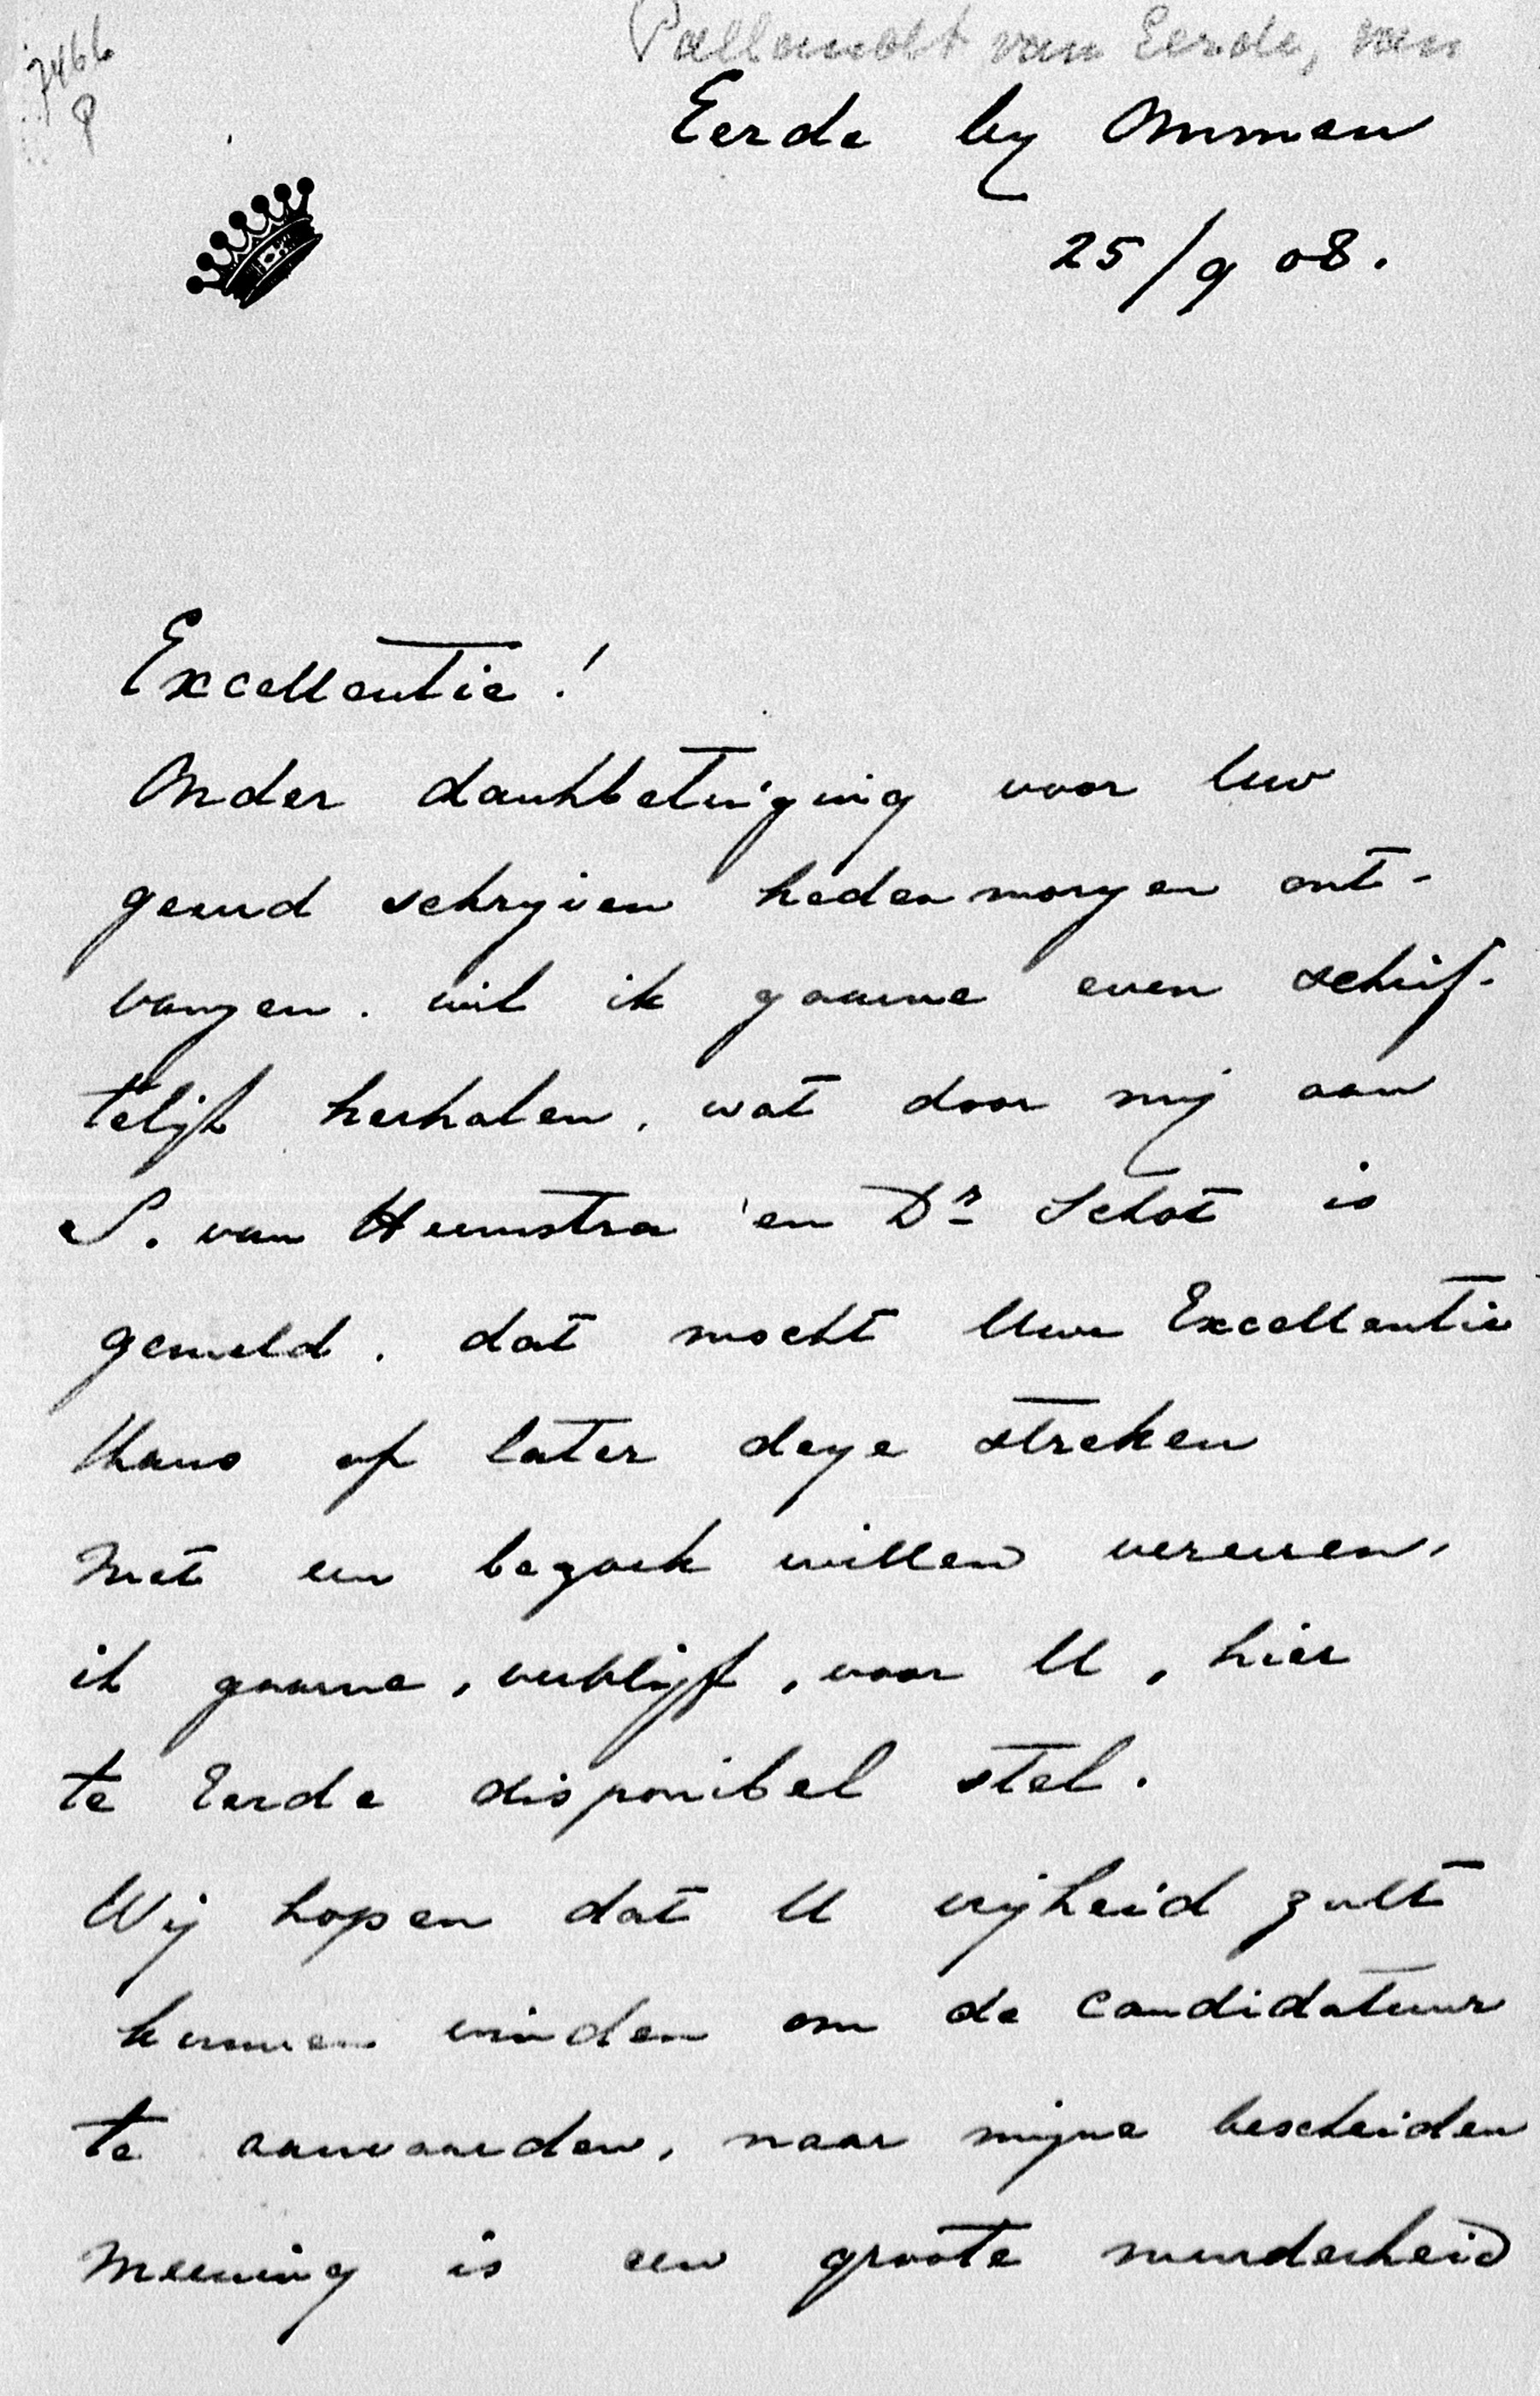 7466
P
Pallandt van Eerde, van
Eerde by Ommen
25/9 08.
Excellentie!
Onder dankbetuiging voor Uw
geeerd schrijven hedenmorgen ont-
vangen. wil ik gaarne even schrif-
telijk herhalen, wat door mij aan
S. van Heemstra en Dr Schot is
gemeld. dat mocht Uwe Excellentie
thans of later deze streken
met een bezoek willen vereeren,
ik gaarne, verblijf, voor U, hier
te Eerde disponibel stel.
Wij hopen dat U vrijheid zult
kunnen vinden om de candidatuur
te aanvaarden, naar mijne bescheiden
meening is een groote minderheid